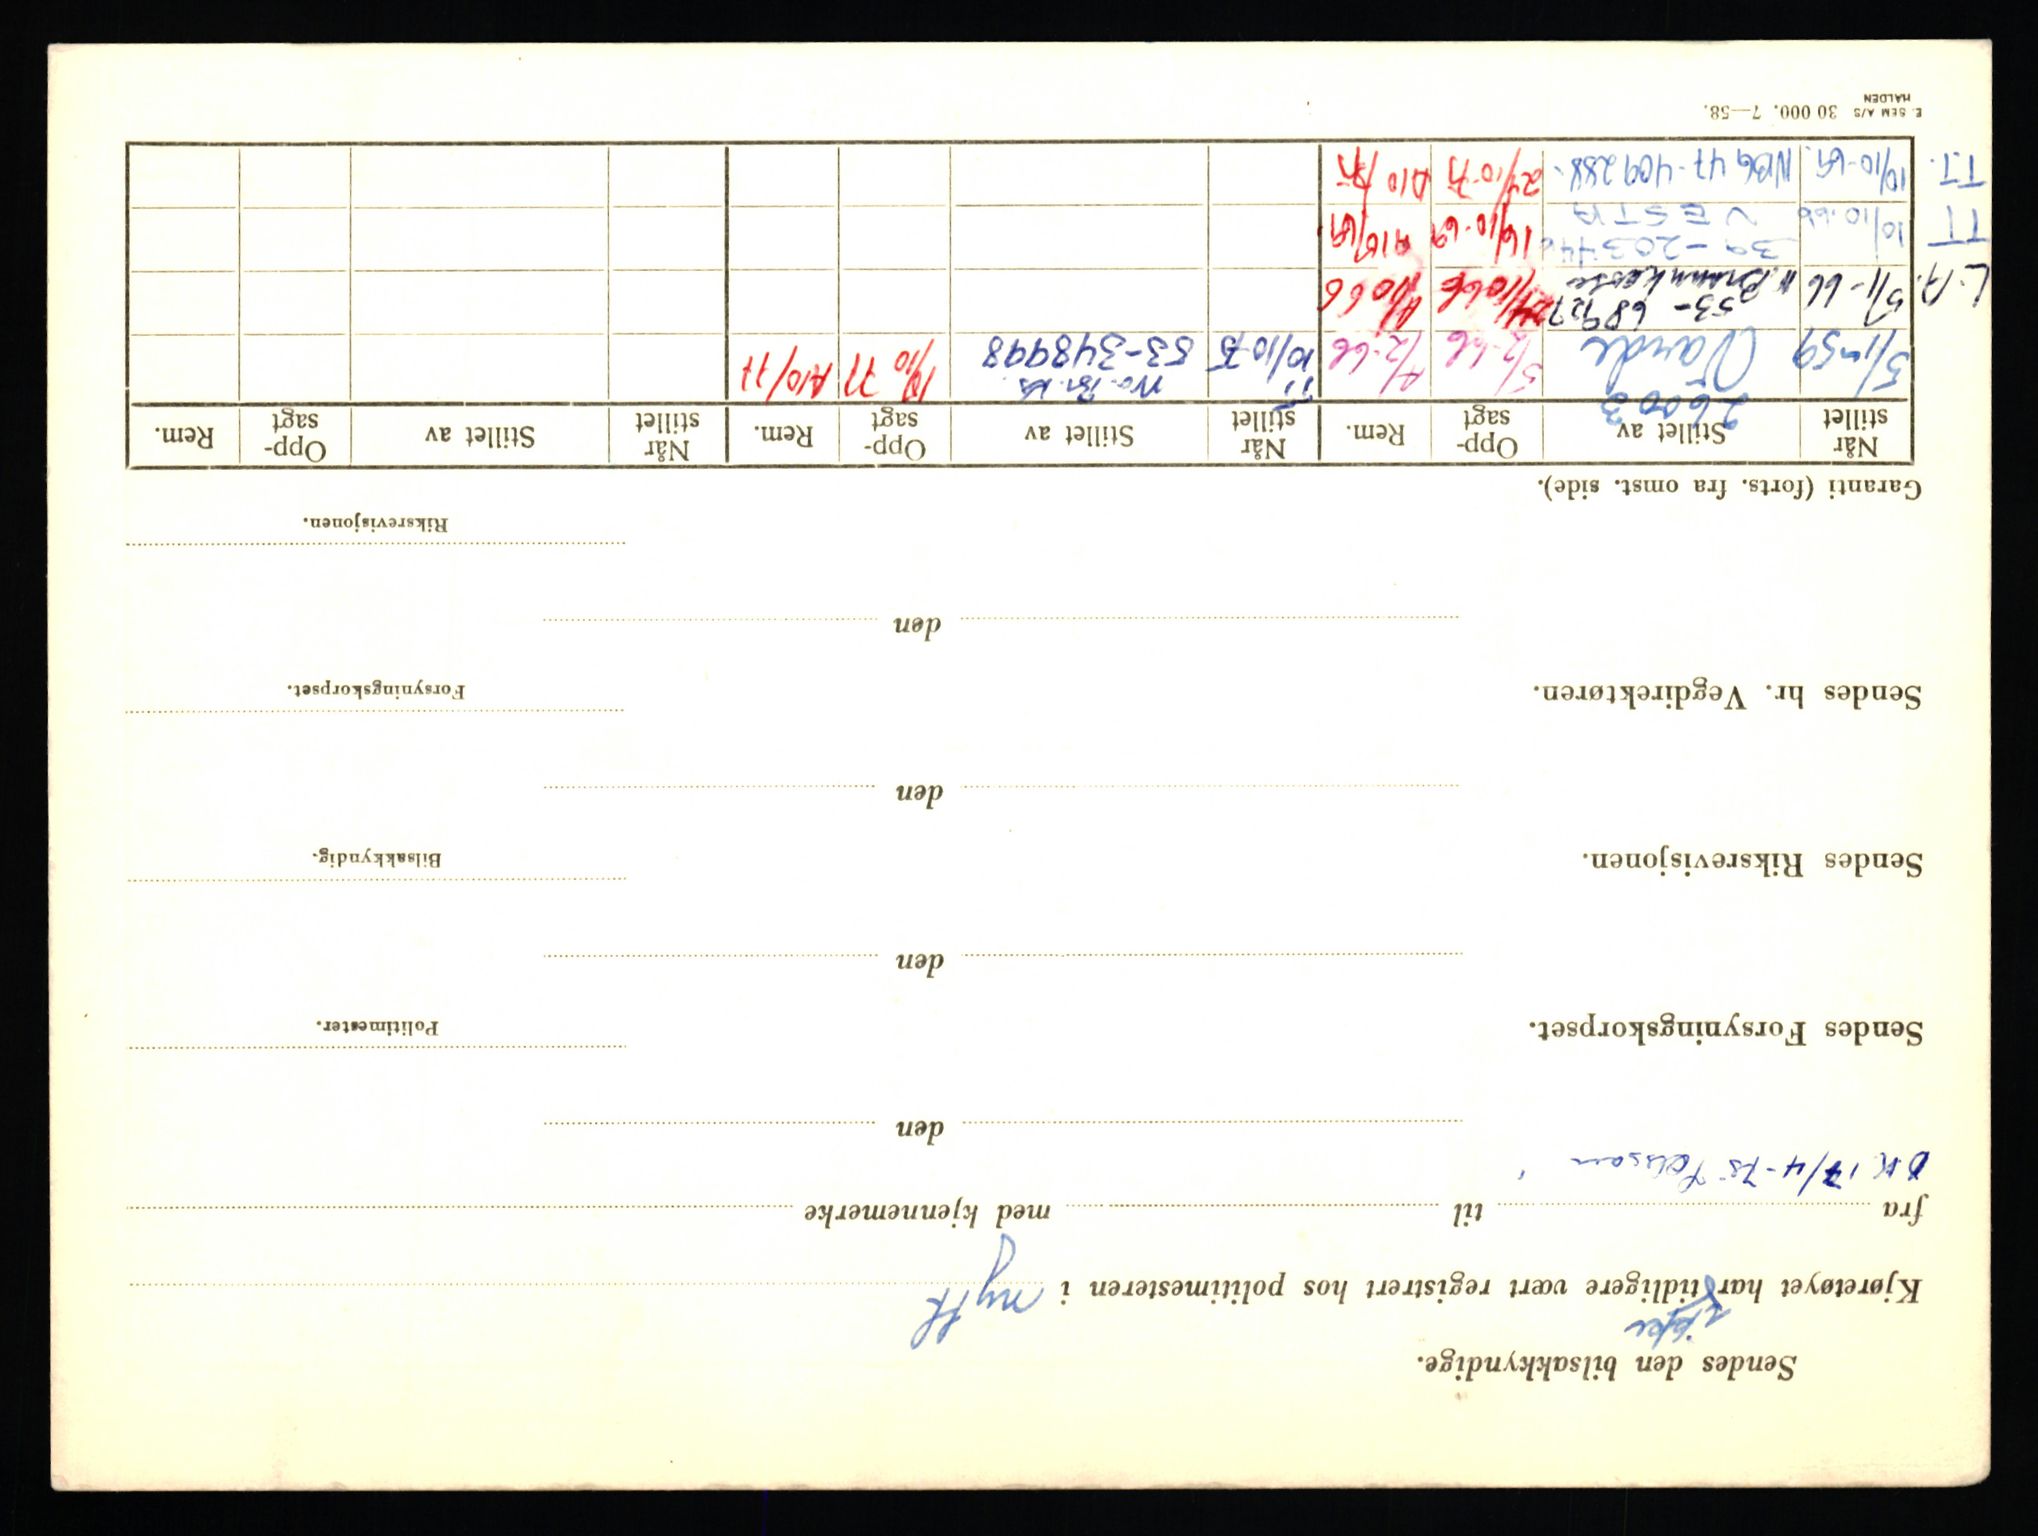 Sendes den bilsakkyndige.
ikke
Kjøretøyet har tidligere vært registrert hos politimesteren i nytt
fra til med kjennemerke
O.K. 17/4-75
den
Sendes Forsyningskorpset.
Politimester.
den
Sendes Riksrevisjonen.
Bilsakkyndig.
den
Sendes hr. Vegdirektøren.
Forsyningskorpset.
den
Riksrevisjonen.
Garanti (forts. fra omst. side).
Når stillet Stillet av Opp-sagt Rem. Når stillet Stillet av Opp-sagt Rem. Når stillet Stillet av Opp-sagt Rem.
26003
5/1-59 5/2-66 4/2-66 10/10-75 No. Br. ks. 53-348998 10/10 77 A10/77
L.A. 5/1-66 53-68927 N. Brannkasse 24/10 66 A10 66
TT 10/10.66 39-203446 VESTA 16/10-69 A10/69.
T.T. 10/10-69. NBG 47-409288- 24/10-75 A10/75
E. SEM A/S HALDEN 30 000. 7—58.